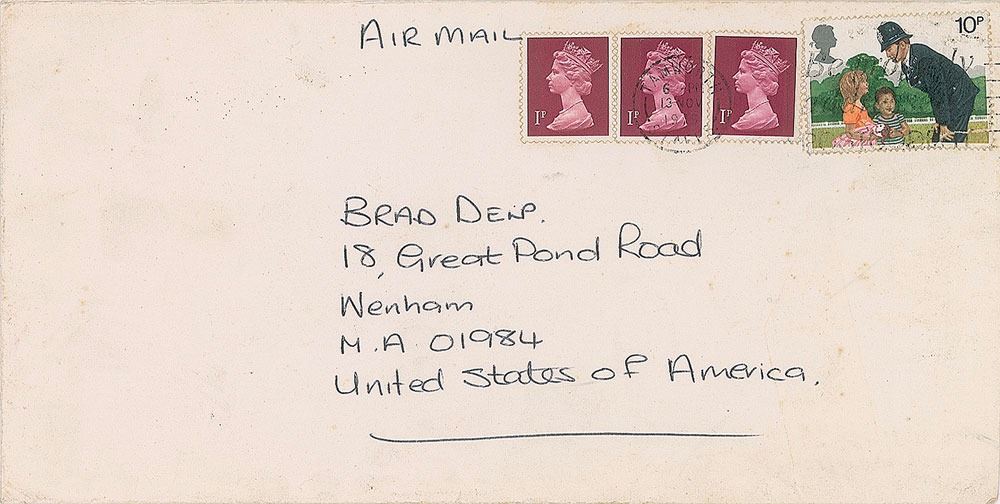 AIR MAIL
1P 1P 1P 10P
6
13 NOV
19
BRAD DELP.
18, Great Pond Road
Wenham
M.A 01984
United States of America.